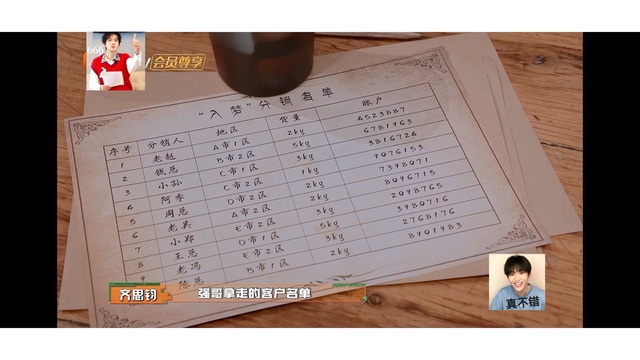 666
会员尊享
“入梦”分销名单
序号 分销人 地区 货量 账户
1 老赵 A市1区 2kg 4523887
2 钱总 B市2区 5kg 6781963
3 小孙 C市1区 3kg 3816724
4 阿李 D市2区 1kg 9076153
5 周总 A市2区 2kg 7398071
6 老吴 E市2区 3kg 8096715
7 小郑 D市1区 5kg 2098765
8 王总 E市2区 3kg 3980716
9 老冯 B市1区 2kg 2768176
陈总 8901983
齐思钧 强哥拿走的客户名单
真不错